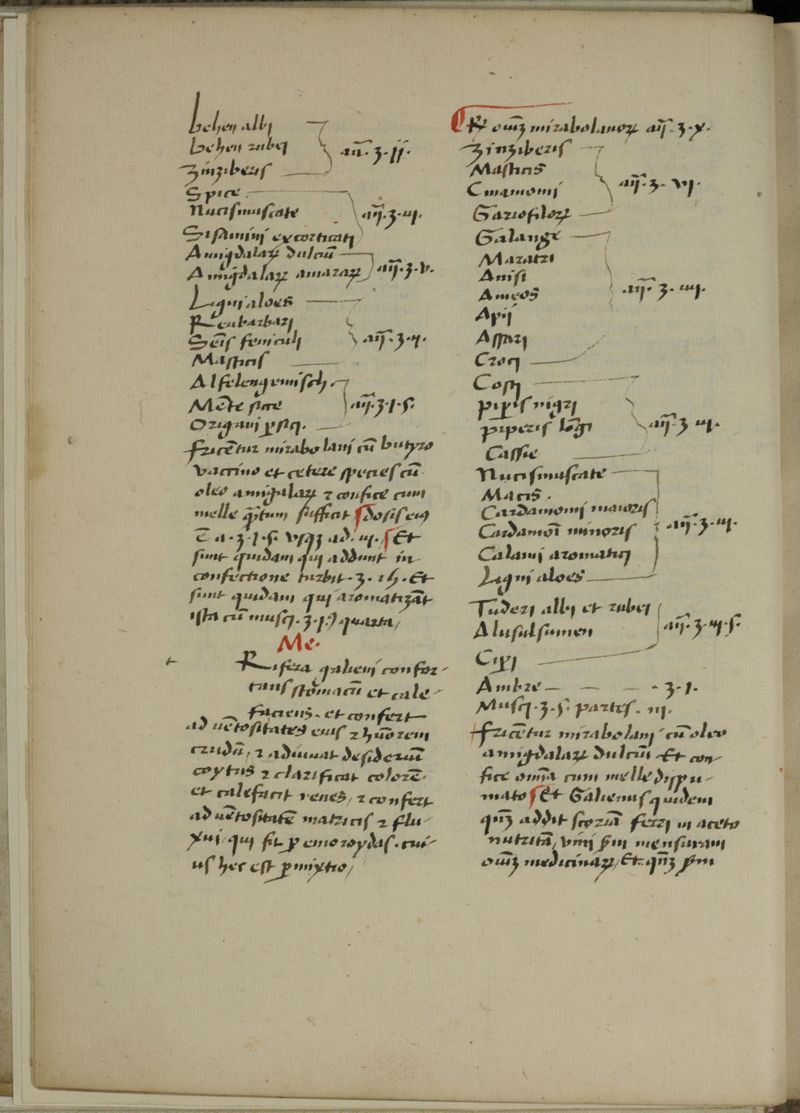 behen albi
behen rubei
zinziberis
añ. ʒ. ii.
Spice
Nucismuscate
Sisamini excorticati
añ. ʒ. iii.
Amigdalaꝝ dulciū
Amigdalaꝝ amaraꝝ
añ. ʒ. v.
Ligni aloes
Reubarbari
Seīs feniculi
Masticis
añ. ʒ. ii.
Alfelengemisch.
Mēte sicce
Origani
añ. ʒ. i. s.
fricētur mirabolani cū butyro
vaccino et cetere species cū
oleo amigdalaꝝ ⁊ confice cum
melle q̄ntum sufficit dosis eius
ē a. ʒ. i. s. vsqꝫ ad. iii. Et
sunt quidam qui addunt in
confectione turbit. ʒ. Et
sunt quidam qui aromatizāt
ista cū musci. ʒ. i. quarta/
Me.
Rifera galieni confor-
tans stomacū et cale-
faciens. et confert
ad vētositates eius ⁊ hūorem
crudū, ⁊ adiuuat desideriū
coytus ⁊ clarificat colorē.
et calefacit renes, ⁊ confert
ad vētositatē matricis ⁊ flu-
xui qui fit ꝑ emoroydas. cui-
us hec est ꝑmixtio/
R omīꝫ mirabolanoꝝ añ. ʒ. x.
Zinziberis
Masticis
Cinamomi
Gariofiloꝝ
añ. ʒ. vi.
Galange
Maratri
Anisi
Ameos
Apii
Assari
Croci
añ. ʒ. iiii.
Costi
piꝑis nigri
piperis lōgi
Cassie
añ. ʒ. iii.
Nucismuscate
Macis.
Cardamomi maioris
Cardamoī minoris
Calami aromatici
Ligni aloes
añ. ʒ. iii.
Tuderi albi et rubei
Alusulsumen
Ciꝑi
añ. ʒ. ii. s.
Ambre ʒ. i.
Musci. ʒ. s. partes. iii.
fricētur mirabolani cū oleo
amigdalaꝝ dulciū Et con-
fice omīa cum melle dispu-
mato Et Galienus quidem
qn̄ꝫ addit scoriā ferri in aceto
nutritā, vini mensuram
omīꝫ medicinaꝝ, Et qn̄ꝫ